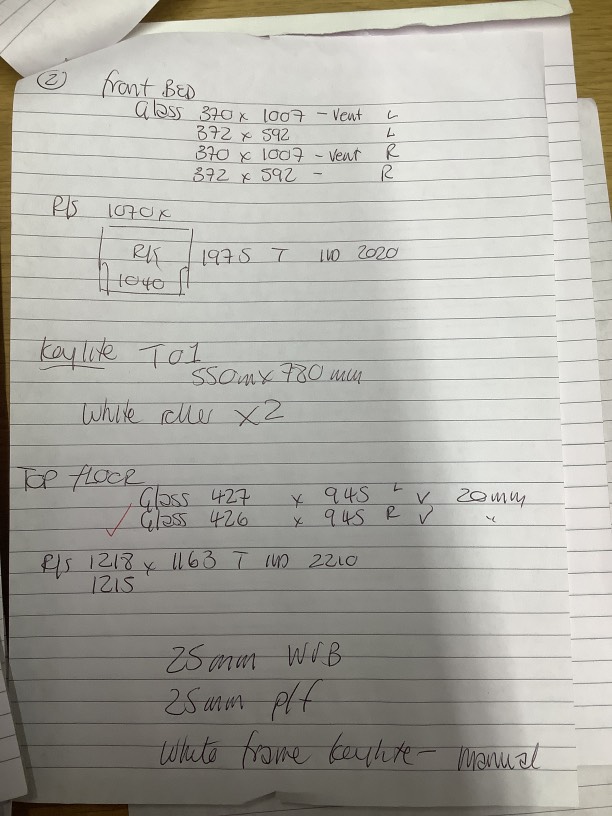 2
front BED
Glass 370 x 1007 - vent L
372 x 592 L
370 x 1007 - vent R
372 x 592 - R
R/S 1070 x
R/S 1975 T 2020
1040
Keylite T01
550m x 780 mm
White x2
TOP FLOOR
Glass 427 x 945 L ✓ 20mm
✓ Glass 426 x 945 R ✓ "
R/S 1218 x 1163 T 2210
1215
25mm WVB
25mm plf
White frame keylite - manual